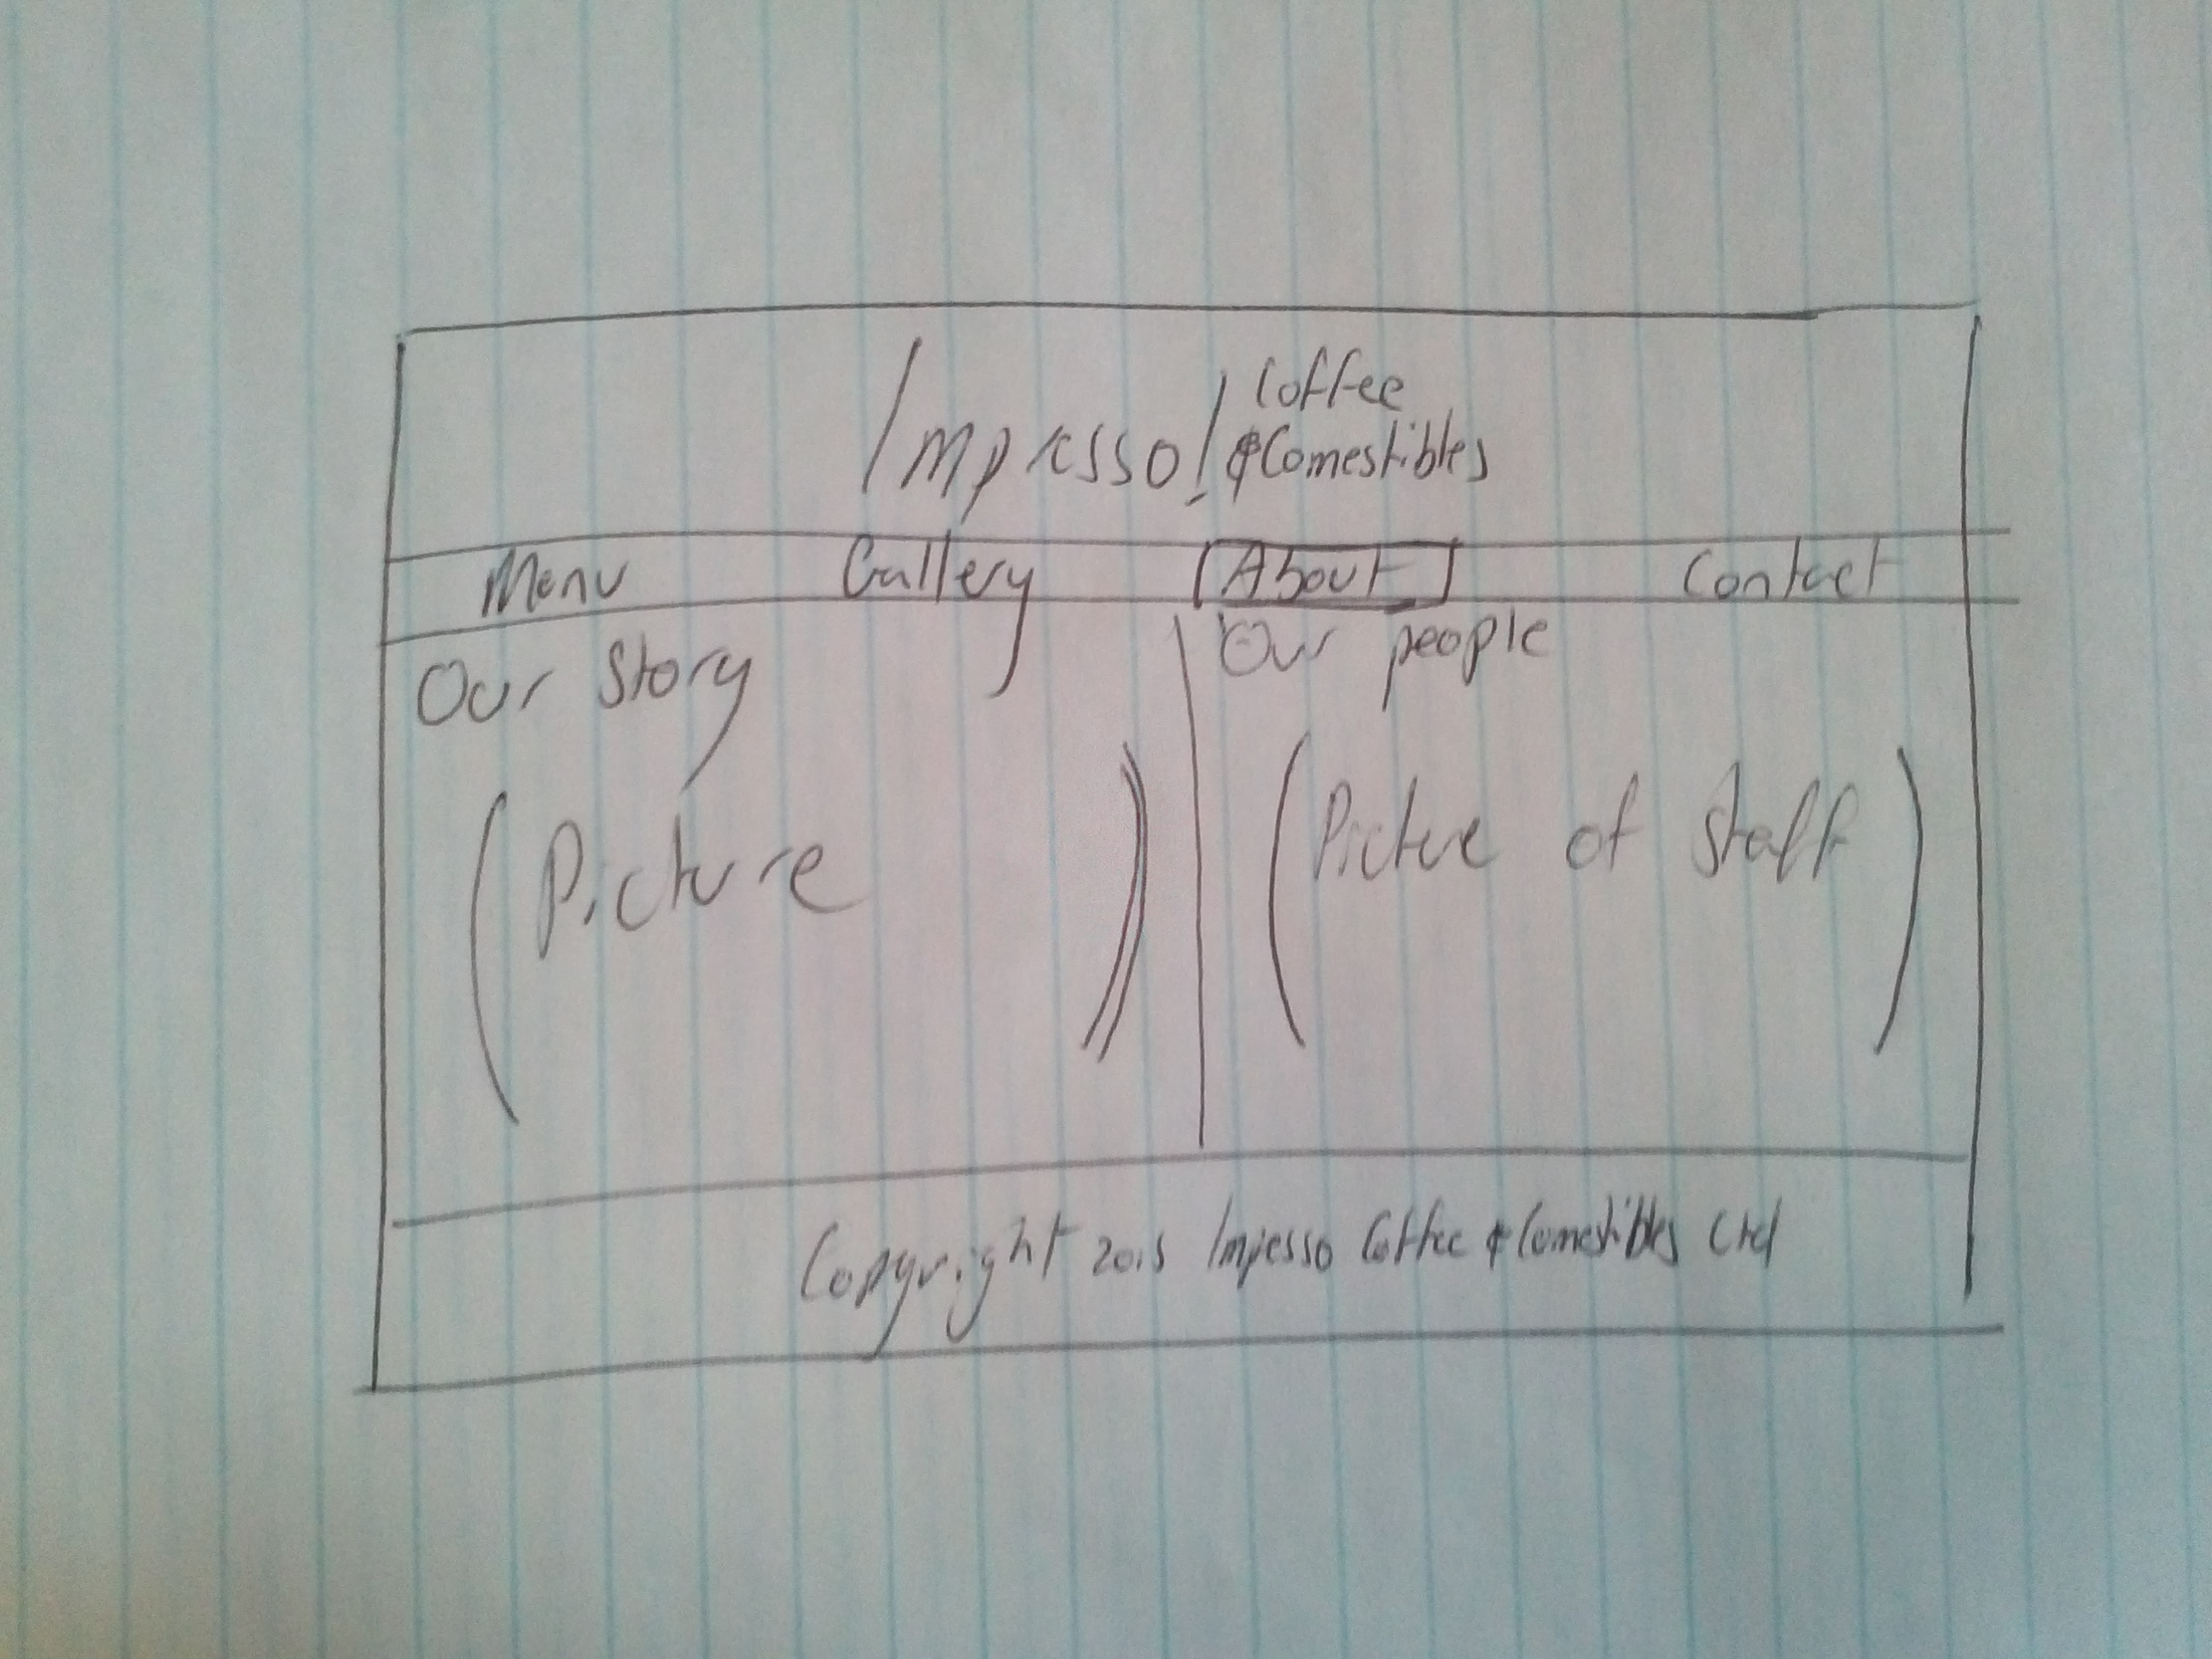 Impresso! Coffee
& Comestibles
Menu Gallery About Contact
Our Story
Our people
(Picture)
(Picture of staff)
Copyright 2015 Impesso Coffee & Comestibles Ltd